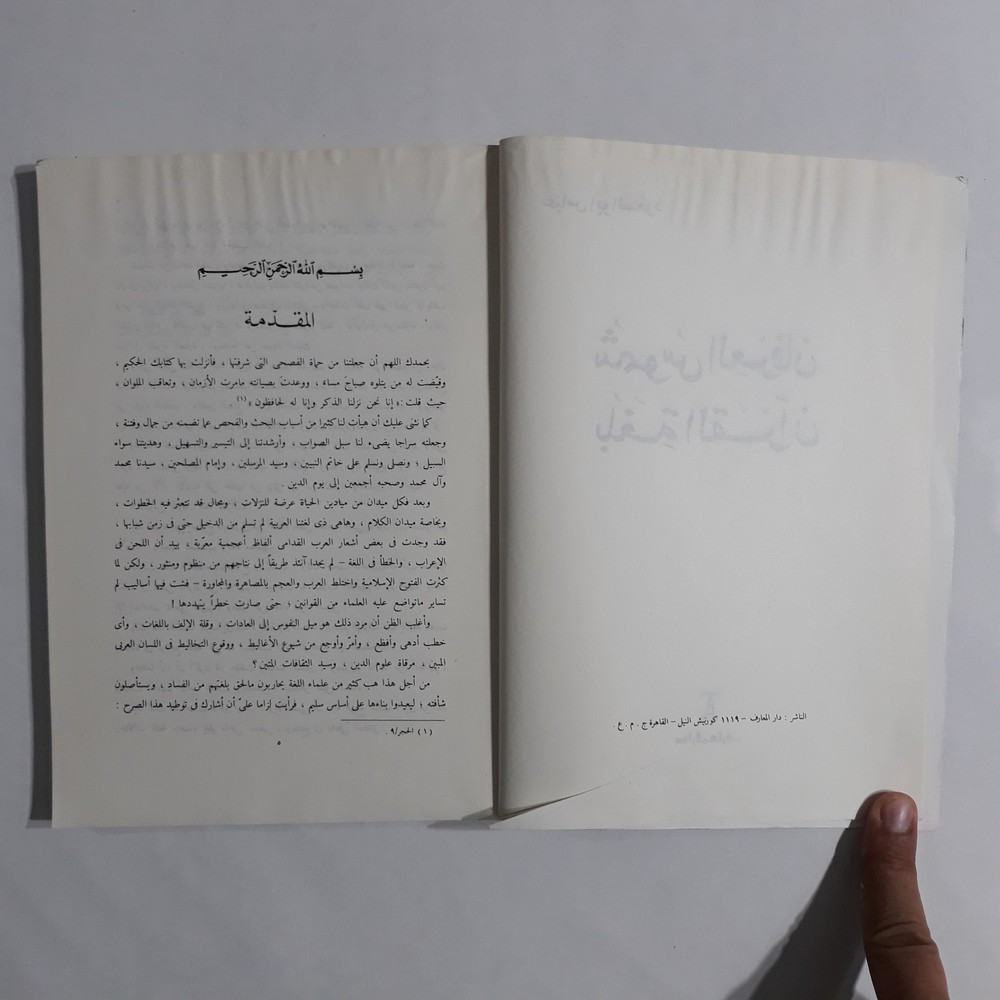 الناشر : دار المعارف – ١١١٩ كورنيش النيل – القاهرة ج . م . ع .
بِسْمِ اللَّهِ الرَّحْمَنِ الرَّحِيمِ
المقدّمة
بحمدك اللهم أن جعلتنا من حماة الفصحى التى شرفتها ، فأنزلت بها كتابك الحكيم ،
وقيّضت له من يتلوه صباحَ مساءَ ، ووعدتَ بصيانته مامرت الأزمان ، وتعاقب الملوان ،
حيث قلت : « إنا نحن نزلنا الذكر وإنا له لحافظون » (١)
كما نثنى عليك أن هيأت لنا كثيرا من أسباب البحث والفحص عما تضمنه من جمال وفتنة ،
وجعلته سراجا يضىء لنا سبل الصواب ، وأرشدتنا إلى التيسير والتسهيل ، وهديتنا سواء
السبيل ؛ ونصلى ونسلم على خاتم النبيين ، وسيد المرسلين ، وإمام المصلحين ، سيدنا محمد
وآل محمد وصحبه أجمعين إلى يوم الدين .
وبعد فكل ميدان من ميادين الحياة عرضة للنزلات ، ومجال قد تتعثر فيه الخطوات ،
وبخاصة ميدان الكلام ، وهاهى ذى لغتنا العربية لم تسلم من الدخيل حتى فى زمن شبابها ،
فقد وجدت فى بعض أشعار العرب القدامى ألفاظ أعجمية معرّبة ، بيد أن اللحن فى
الإعراب ، والخطأ فى اللغة – لم يجدا آنئذ طريقاً إلى نتاجهم من منظوم ومنثور ، ولكن لما
كثرت الفتوح الإسلامية واختلط العرب والعجم بالمصاهرة والمجاورة – فشت فيها أساليب لم
تساير ماتواضع عليه العلماء من القوانين ؛ حتى صارت خطراً يتهددها !
وأغلب الظن أن مرد ذلك هو ميل النفوس إلى العادات ، وقلة الإلف باللغات ، وأى
خطب أدهى وأفظع ، وأمرّ وأوجع من شيوع الأغاليط ، ووقوع التخاليط فى اللسان العربى
المبين ، مرقاة علوم الدين ، وسيد الثقافات المتين ؟
من أجل هذا هب كثير من علماء اللغة يحاربون مالحق بلغتهم من الفساد ، ويستأصلون
شأفته ؛ ليعيدوا بناءها على أساس سليم ، فرأيت لزاما علىّ أن أشارك فى توطيد هذا الصرح :
( ١ ) الحجر/٩ .
٥